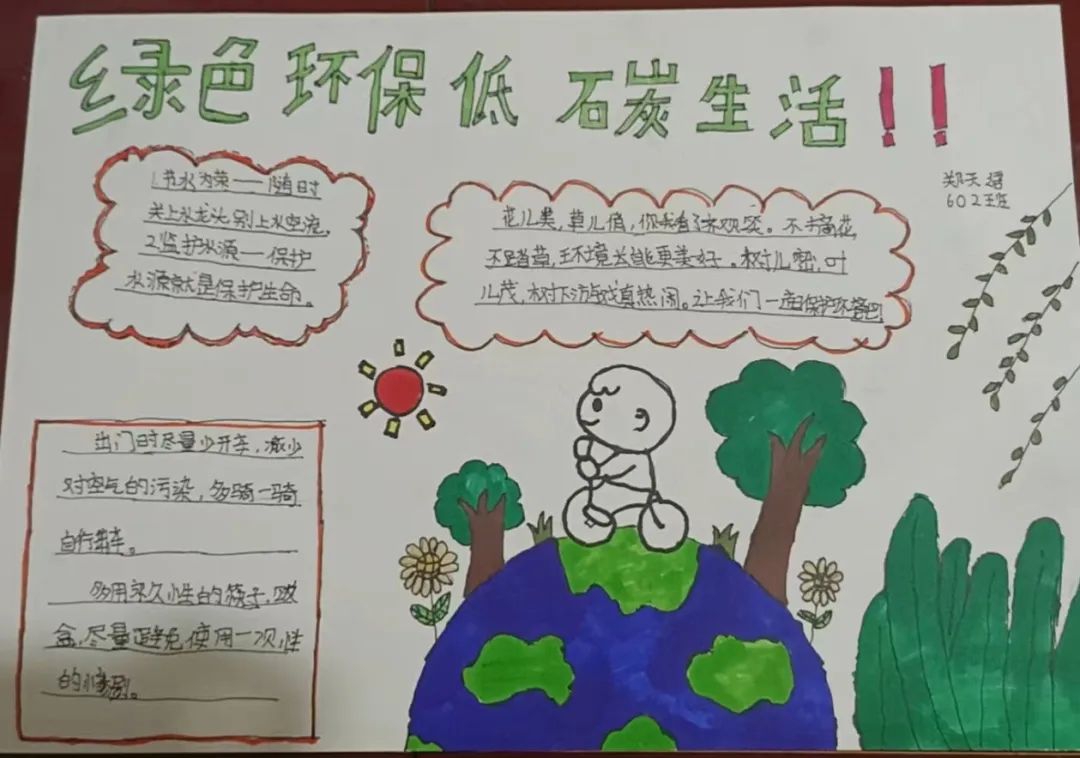 绿色环保低碳生活!!
郑天
602班
1节水为荣——随时
关上水龙头别上水空流,
2监护水源——保护
水源就是保护生命。
花儿美,草儿俏,你我看了齐观笑。不摘花
不踏草,环境才能更美好。树儿密,叶
儿茂,树下游戏真热闹。让我们一起保护环境吧
出门时尽量少开车,减少
对空气的污染,多骑一骑
自行车。
多用永久性的筷子,饭
盒,尽量避免使用一次性
的